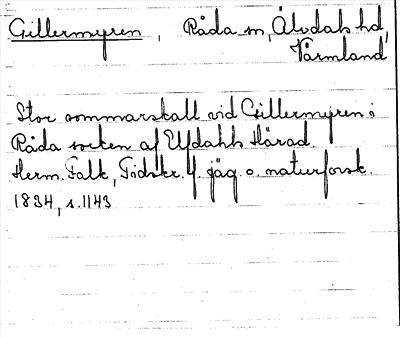 Gillermyren, Råda sn, Älvdals hd,
Värmland
Stor sommarskall vid Gillermyren i
Råda socken af Elfdahls Härad.
Herm. Falk, Tidskr. f. jäg. o. naturforsk.
1834, s. 1143